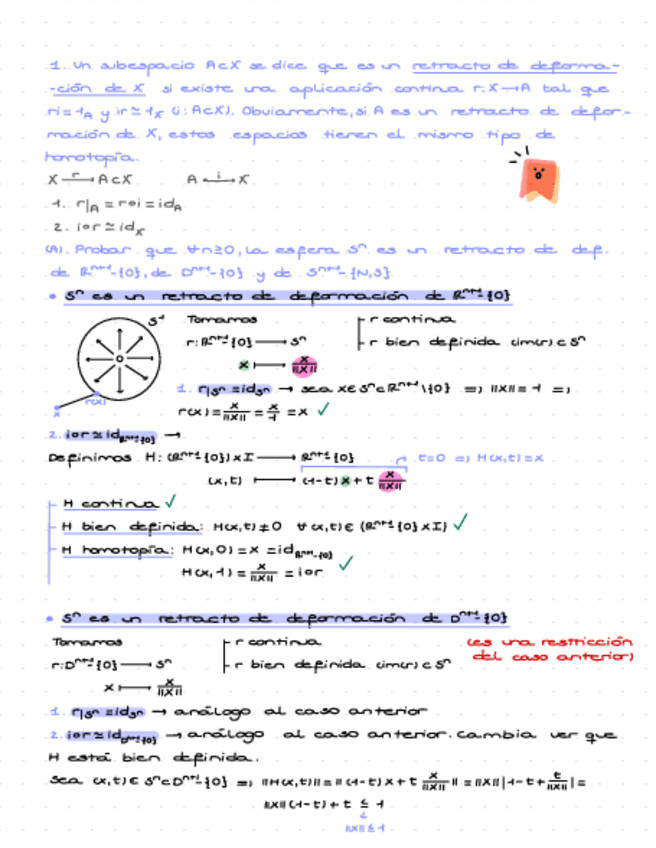 1. Un subespacio A⊂X se dice que es un retracto de deforma-
-ción de X si existe una aplicación continua r:X→A tal que
ri=1_A y ir≃1_X (i:A⊂X). Obviamente, si A es un retracto de defor-
mación de X, estos espacios tienen el mismo tipo de
homotopía.
X —r→ A⊂X A —i→ X
1. r|_A = r∘i = id_A
2. i∘r ≃ id_X
(A). Probar que ∀n≥0, la esfera Sⁿ es un retracto de def.
de Rⁿ⁺¹-{0}, de Dⁿ⁺¹-{0} y de Sⁿ⁺¹-{N,S}
• Sⁿ es un retracto de deformación de Rⁿ⁺¹-{0}
S¹
Tomamos
r: Rⁿ⁺¹-{0} → Sⁿ
x ↦ x/||x||
r continua
r bien definida (im(r)⊂Sⁿ
x r(x)
1. r|_Sⁿ = id_Sⁿ → sea x∈Sⁿ⊂Rⁿ⁺¹\{0} => ||x||=1 =>
r(x) = x/||x|| = x/1 = x ✓
2. i∘r ≃ id_Rⁿ⁺¹-{0} →
Definimos H: (Rⁿ⁺¹-{0})×I → Rⁿ⁺¹-{0} t=0 => H(x,t)=x
(x,t) ↦ (1-t)x + t x/||x||
H continua ✓
H bien definida: H(x,t)≠0 ∀(x,t)∈(Rⁿ⁺¹-{0}×I) ✓
H homotopía: H(x,0) = x = id_Rⁿ⁺¹-{0}
H(x,1) = x/||x|| = i∘r ✓
• Sⁿ es un retracto de deformación de Dⁿ⁺¹-{0}
Tomamos
r: Dⁿ⁺¹-{0} → Sⁿ
x ↦ x/||x||
r continua
r bien definida (im(r)⊂Sⁿ
(es una restricción
del caso anterior)
1. r|_Sⁿ = id_Sⁿ → análogo al caso anterior
2. i∘r ≃ id_Dⁿ⁺¹-{0} → análogo al caso anterior. Cambia ver que
H está bien definida.
Sea (x,t)∈Sⁿ⊂Dⁿ⁺¹-{0} => ||H(x,t)|| = ||(1-t)x + t x/||x|| || = ||x|| |1-t+ t/||x|| | =
||x||(1-t)+t ≤ 1
||x||≤1